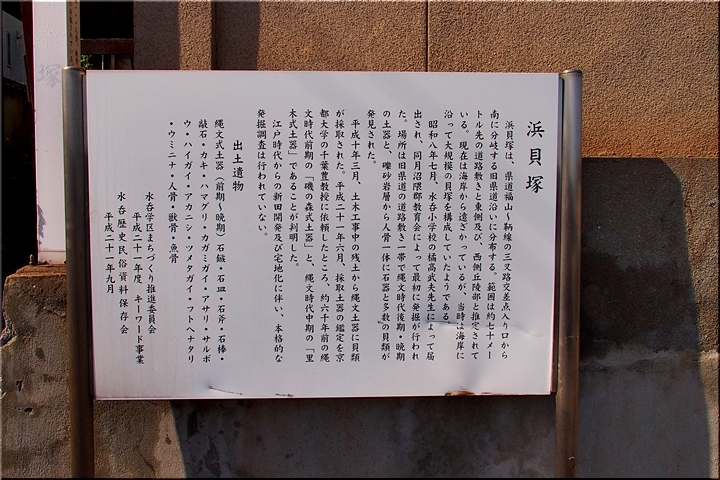 浜貝塚
浜貝塚は、県道福山～鞆線の三叉路交差点入り口から
南に分岐する旧県道沿いに分布する。範囲は約七十メー
トル先の道路敷きと東側及び、西側丘陵部と推定されて
いる。現在は海岸から遠ざかっているが、当時は海岸に
沿って大規模の貝塚を構成していたようである。
昭和八年七月、水呑小学校の橘高武夫先生によって届
出され、同月沼隈郡教育会によって最初に発掘が行われ
た。場所は旧県道の道路敷き一帯で縄文時代後期・晩期
の土器と、礫砂岩層から人骨一体に石器と多数の貝類が
発見された。
平成十年三月、土木工事中の残土から縄文土器に貝類
が採取された。平成二十一年六月、採取土器の鑑定を京
都大学の千葉豊教授に依頼したところ、約六千年前の縄
文時代前期の「磯の森式土器」と、縄文時代中期の「里
木式土器」であることが判明した。
江戸時代からの新田開発及び宅地化に伴い、本格的な
発掘調査は行われていない。
出土遺物
縄文式土器（前期～晩期）石鏃・石皿・石斧・石棒・
敲石・カキ・ハマグリ・カガミガイ・アサリ・サルボ
ウ・ハイガイ・アカニシ・ツメタガイ・フトヘナタリ
・ウミニナ・人骨・獣骨・魚骨
水呑学区まちづくり推進委員会
平成二十一年度 キーワード事業
水呑歴史民俗資料保存会
平成二十一年九月
塚